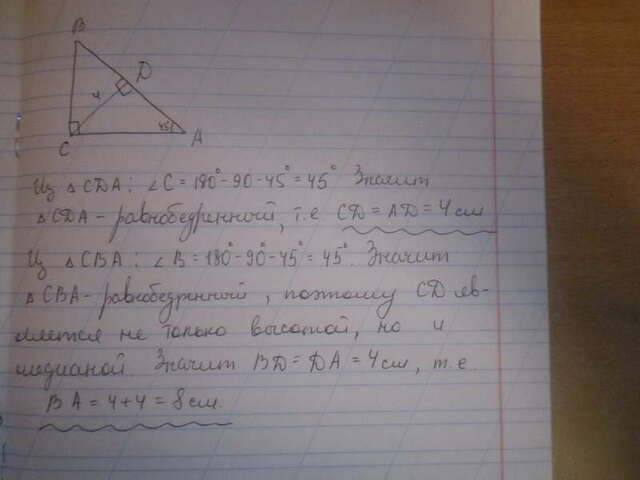 B
D
4
45°
C
A
Из △CDA: ∠C = 180° - 90 - 45° = 45° Значит
△CDA - равнобедренный, т.е. CD = AD = 4 см
Из △CBA: ∠B = 180° - 90° - 45° = 45°. Значит
△CBA - равнобедренный, поэтому CD яв-
ляется не только высотой, но и
медианой. Значит BD = DA = 4 см, т.е.
BA = 4 + 4 = 8 см.